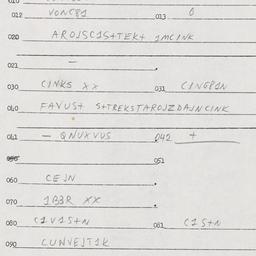 012 VONC81 013 O
020 AROJSC1S+TEK+ 1MC1NK
021 —
030 C1NKS XX 031 C1NGP1N
040 FAVUS+ S+TREKSTAROJZDAJNC1NK
041 — QNUXVUS 042 +
050 051
060 CEJN
070 1B3R XX
080 C1V1S+N 081 C1S+N
090 CUNVEJT1K